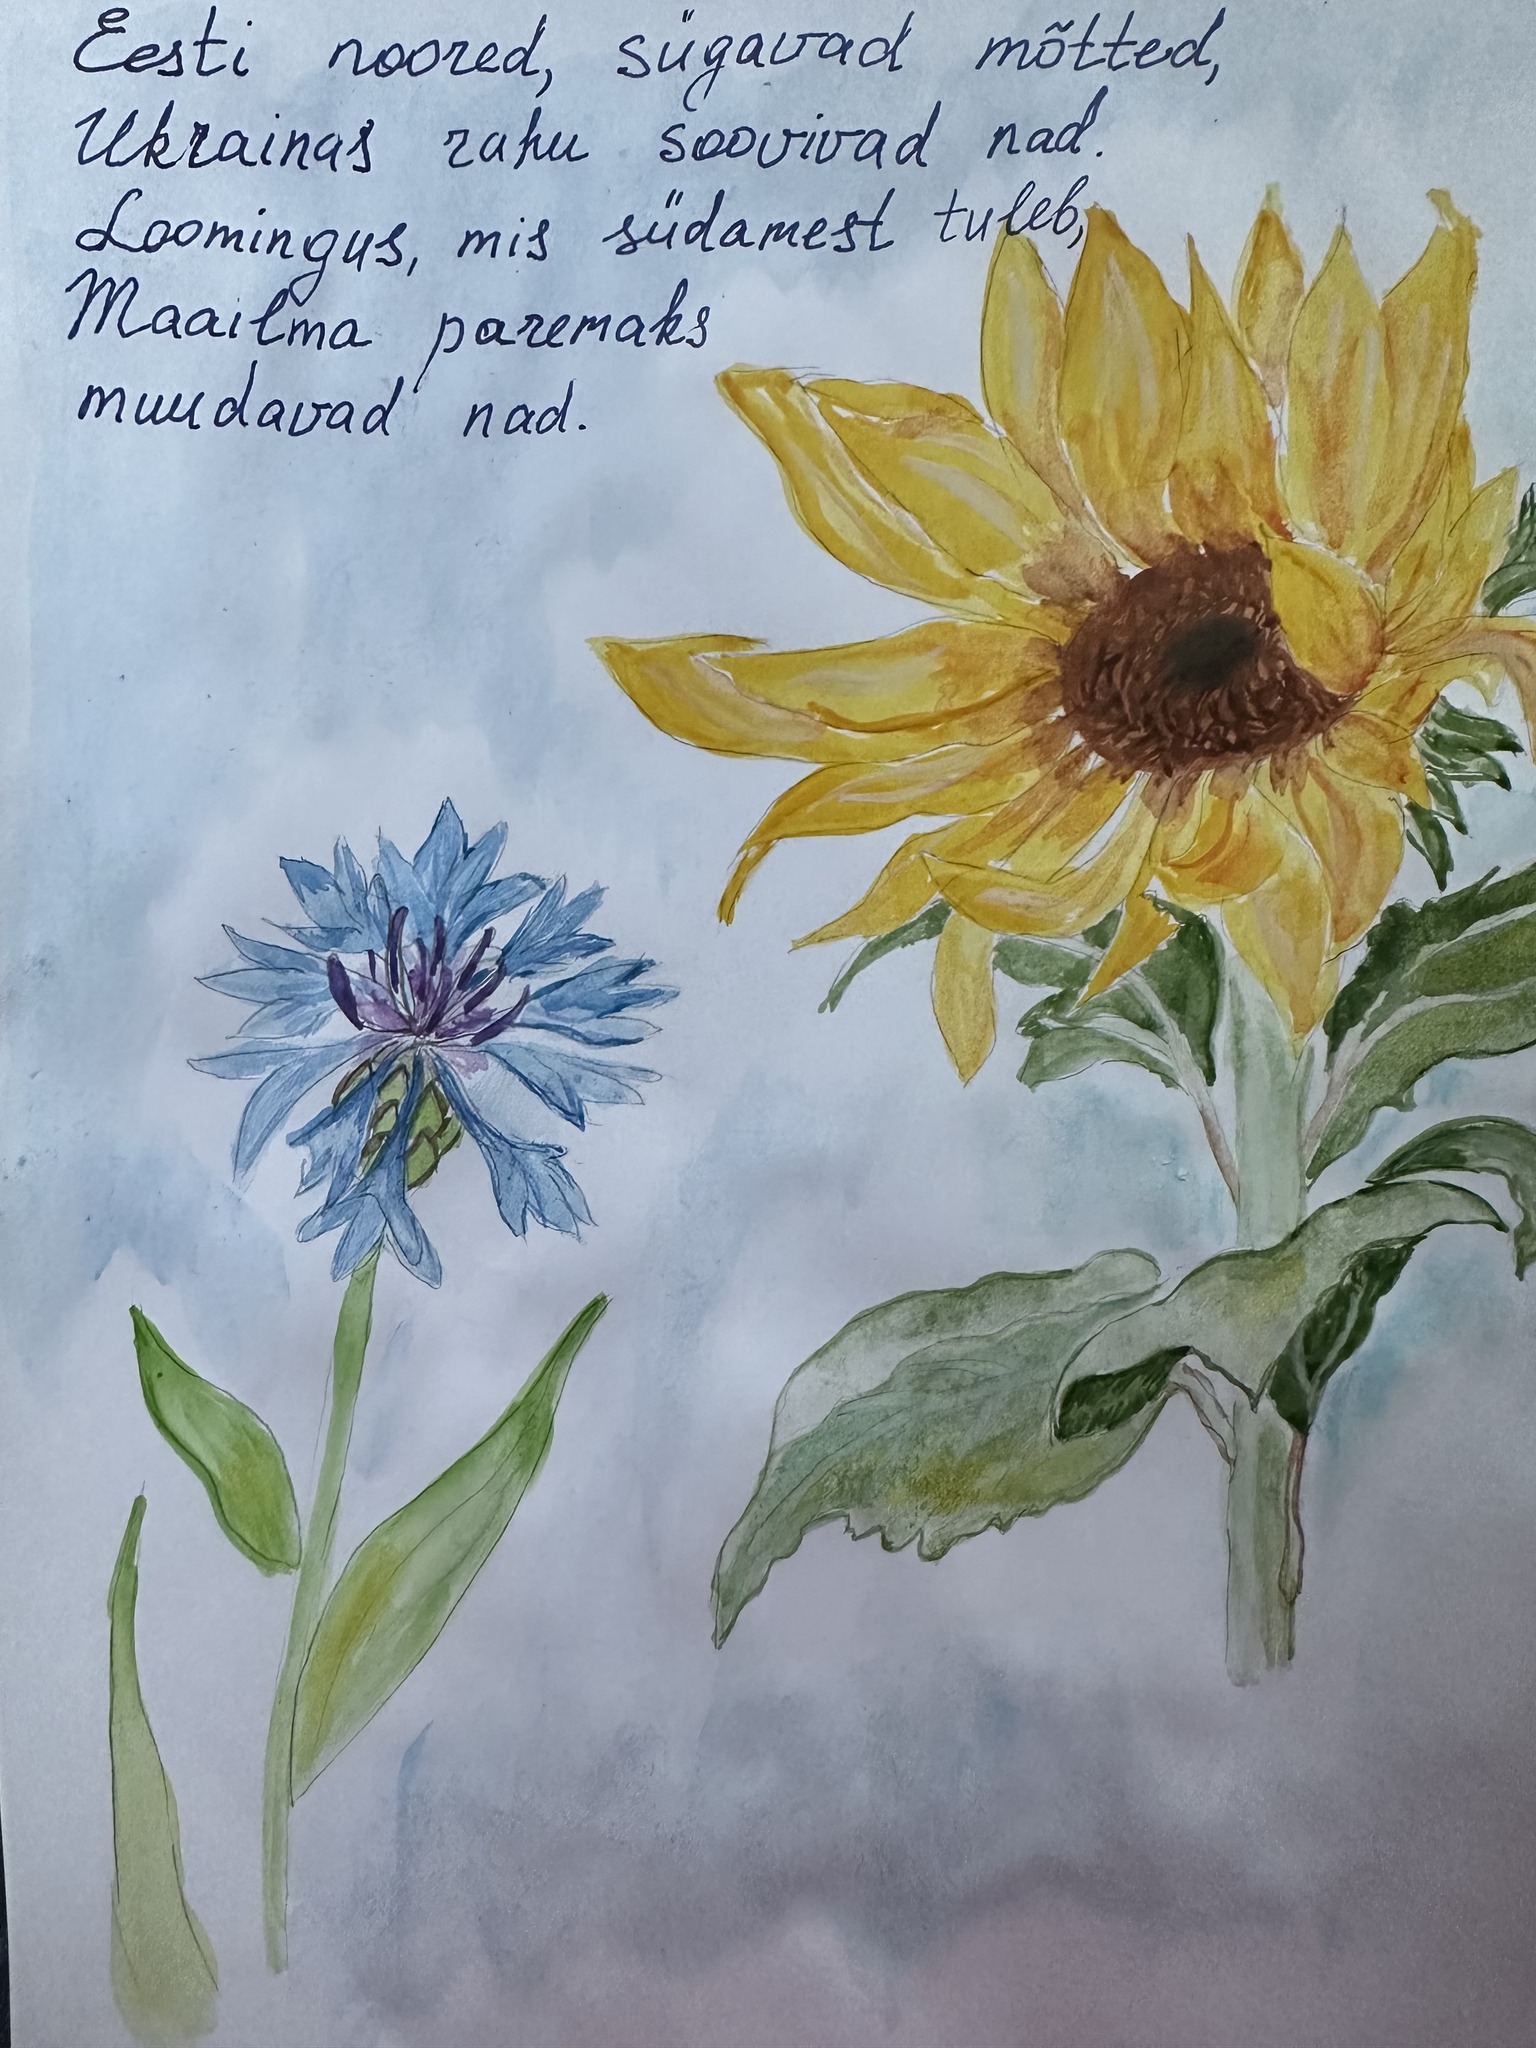 Eesti noored, sügavad mõtted,
Ukrainas rahu soovivad nad.
Loomingus, mis südamest tuleb,
Maailma paremaks
muudavad nad.